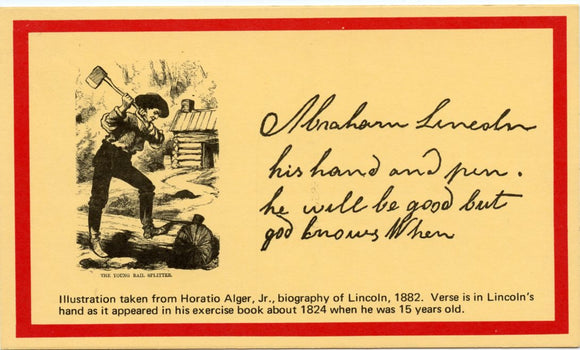 Abraham Lincoln
his hand and pen.
he will be good but
god knows When
THE YOUNG RAIL SPLITTER.
Illustration taken from Horatio Alger, Jr., biography of Lincoln, 1882. Verse is in Lincoln's
hand as it appeared in his exercise book about 1824 when he was 15 years old.